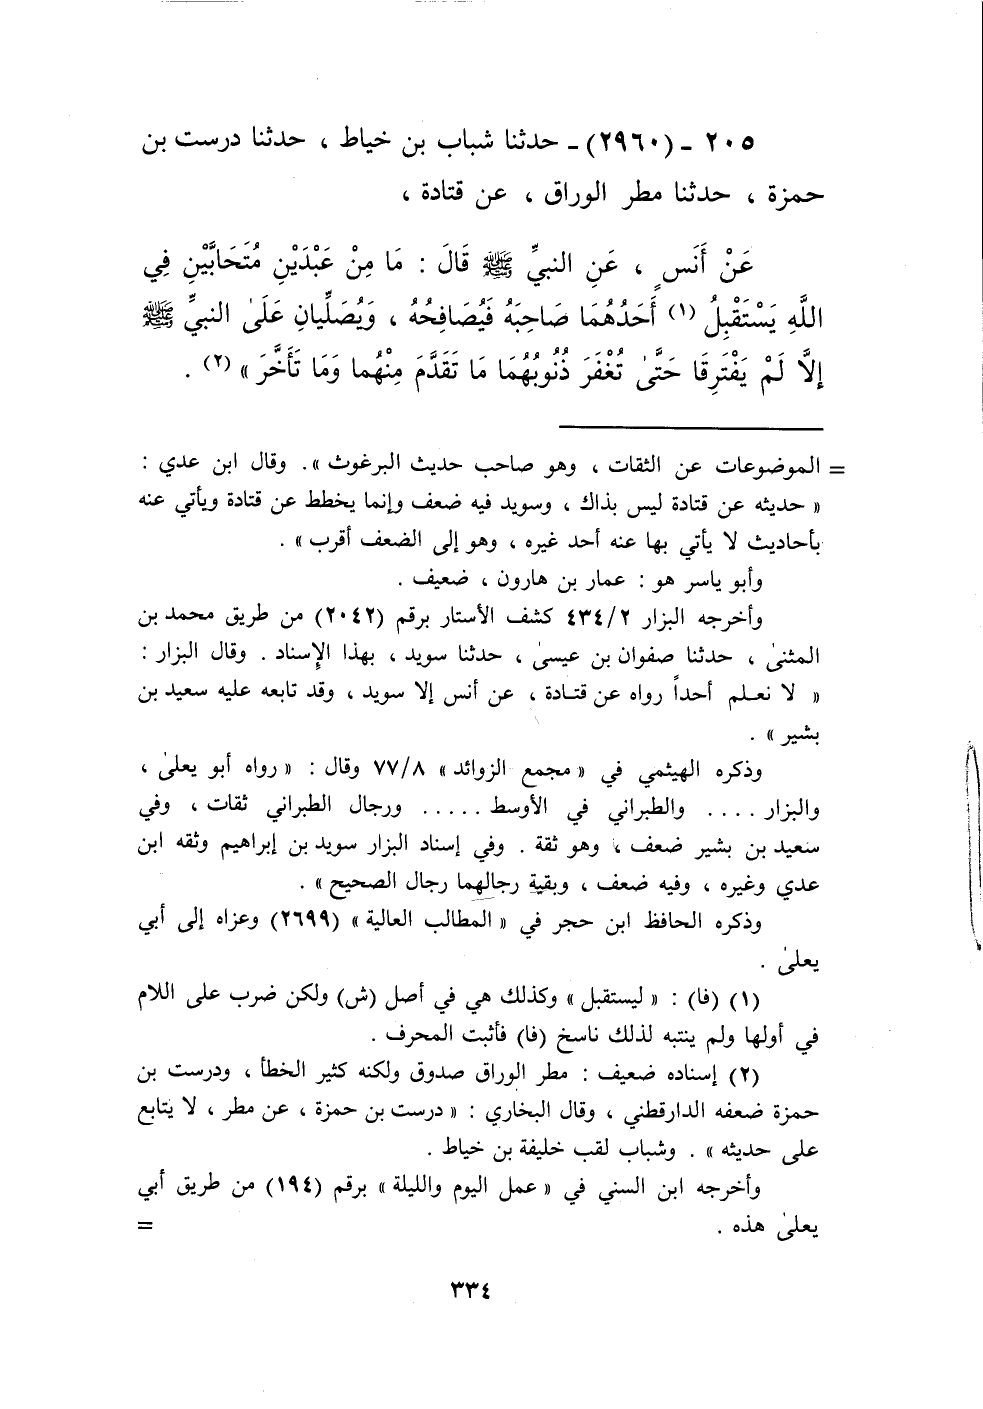 ٢٠٥ - (٢٩٦٠) - حدثنا شباب بن خياط ، حدثنا درست بن
حمزة ، حدثنا مطر الوراق ، عن قتادة ،
عَنْ أَنَسٍ ، عَنِ النبيِّ ﷺ قَالَ : مَا مِنْ عَبْدَيْنِ مُتَحَابَّيْنِ فِي
اللَّهِ يَسْتَقْبِلُ (١) أَحَدُهُمَا صَاحِبَهُ فَيُصَافِحُهُ ، وَيُصَلِّيانِ عَلَىٰ النبيِّ ﷺ
إِلَّا لَمْ يَفْتَرِقَا حَتَّىٰ تُغْفَرَ ذُنُوبُهُمَا مَا تَقَدَّمَ مِنْهُما وَمَا تَأَخَّرَ » (٢) .
= الموضوعات عن الثقات ، وهو صاحب حديث البرغوث » . وقال ابن عدي :
« حديثه عن قتادة ليس بذاك ، وسويد فيه ضعف وإنما يخطط عن قتادة ويأتي عنه
بأحاديث لا يأتي بها عنه أحد غيره ، وهو إلى الضعف أقرب » .
وأبو ياسر هو : عمار بن هارون ، ضعيف .
وأخرجه البزار ٢/ ٤٣٤ كشف الأستار برقم (٢٠٤٢) من طريق محمد بن
المثنىٰ ، حدثنا صفوان بن عيسىٰ ، حدثنا سويد ، بهذا الإِسناد . وقال البزار :
« لا نعـلـم أحداً رواه عن قتـادة ، عن أنس إلا سويد ، وقد تابعه عليه سعيد بن
بشير » .
وذكره الهيثمي في « مجمع الزوائد » ٨/ ٧٧ وقال : « رواه أبو يعلىٰ ،
والبزار .... والطبراني في الأوسط ..... ورجال الطبراني ثقات ، وفي
سعيد بن بشير ضعف ، وهو ثقة . وفي إسناد البزار سويد بن إبراهيم وثقه ابن
عدي وغيره ، وفيه ضعف ، وبقية رجالهما رجال الصحيح » .
وذكره الحافظ ابن حجر في « المطالب العالية » (٢٦٩٩) وعزاه إلى أبي
يعلىٰ .
(١) (فا) : « ليستقبل » وكذلك هي في أصل (ش) ولكن ضرب على اللام
في أولها ولم ينتبه لذلك ناسخ (فا) فأثبت المحرف .
(٢) إسناده ضعيف : مطر الوراق صدوق ولكنه كثير الخطأ ، ودرست بن
حمزة ضعفه الدارقطني ، وقال البخاري : « درست بن حمزة ، عن مطر ، لا يتابع
على حديثه » . وشباب لقب خليفة بن خياط .
وأخرجه ابن السني في « عمل اليوم والليلة » برقم (١٩٤) من طريق أبي
يعلىٰ هذه . =
٣٣٤